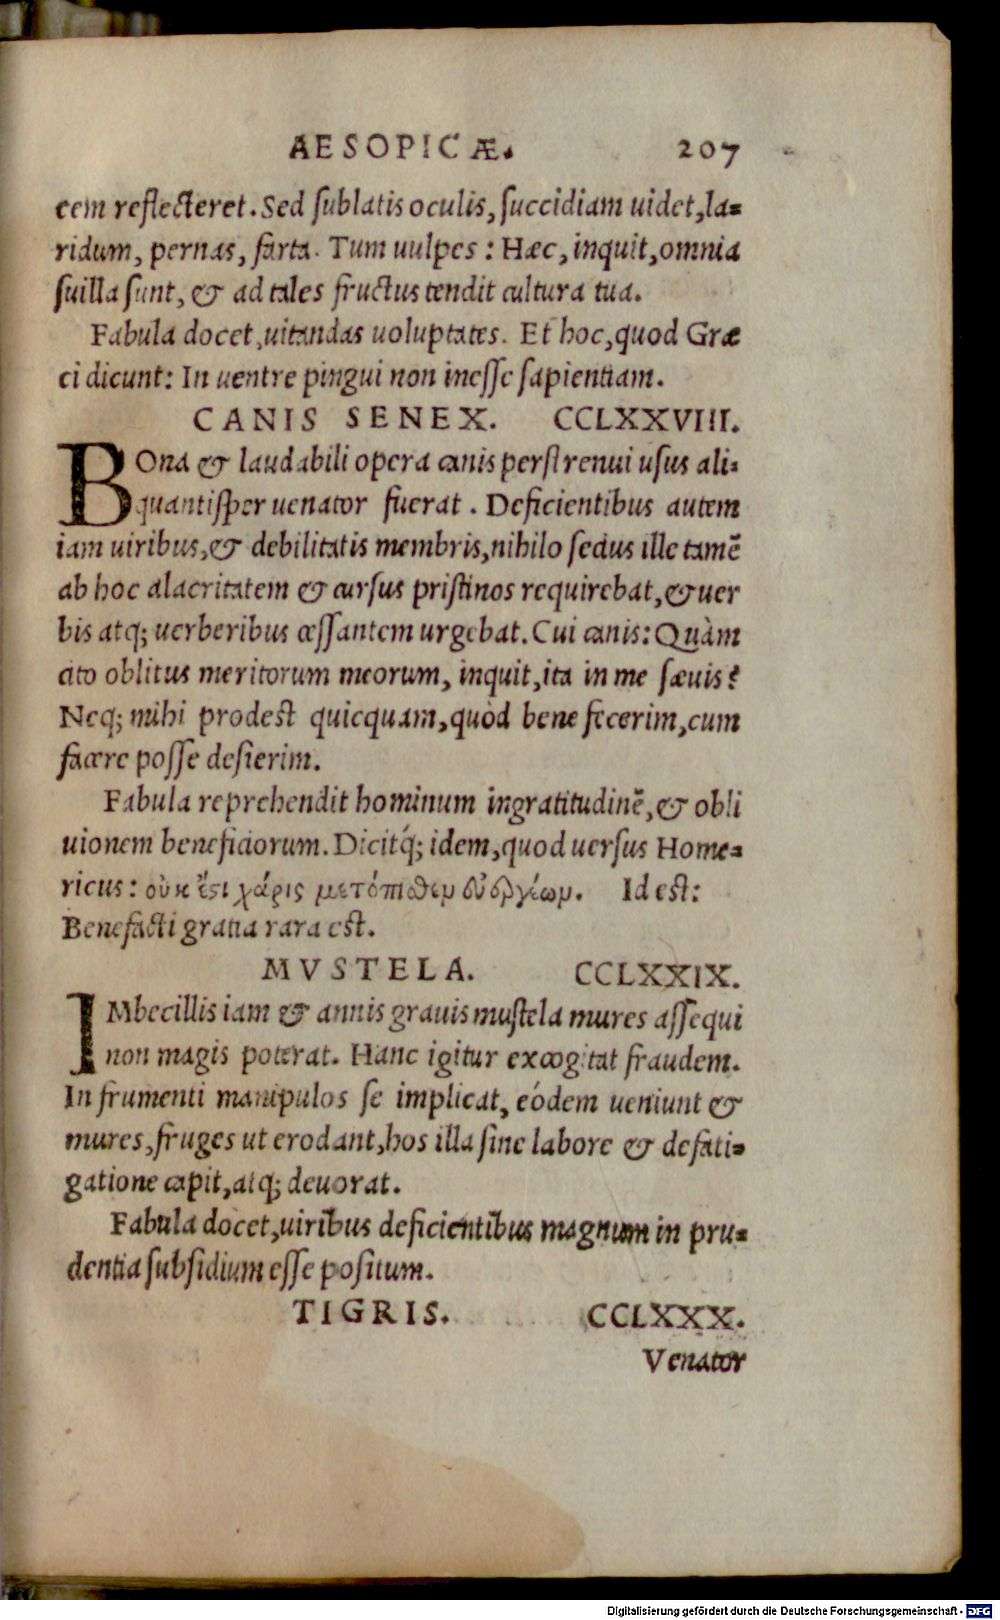 AESOPICÆ. 207
cem reflecteret. Sed sublatis oculis, succidiam uidet, la=
ridum, pernas, farta. Tum uulpes: Hæc, inquit, omnia
suilla sunt, & ad tales fructus tendit cultura tua.
Fabula docet, uitandas uoluptates. Et hoc, quod Græ
ci dicunt: In uentre pingui non inesse sapientiam.
CANIS SENEX. CCLXXVIII.
BOna & laudabili opera canis perstrenui usus ali=
quantisper uenator fuerat. Deficientibus autem
iam uiribus, & debilitatis membris, nihilo secius ille tamẽ
ab hoc alacritatem & cursus pristinos requirebat, & uer
bis atq; uerberibus cessantem urgebat. Cui canis: Quàm
cito oblitus meritorum meorum, inquit, ita in me sæuis?
Neq; mihi prodest quicquam, quòd bene fecerim, cum
facere posse desierim.
Fabula reprehendit hominum ingratitudinẽ, & obli
uionem beneficiorum. Dicitq́; idem, quod uersus Home=
ricus: οὐκ ἔστι χάρις μετόπισθεν εὐεργέων. Id est:
Benefacti gratia rara est.
MVSTELA. CCLXXIX.
IMbecillis iam & annis grauis mustela mures assequi
non magis poterat. Hanc igitur excogitat fraudem.
In frumenti manipulos se implicat, eódem ueniunt &
mures, fruges ut erodant, hos illa sine labore & defati=
gatione capit, atq; deuorat.
Fabula docet, uiribus deficientibus magnum in pru=
dentia subsidium esse positum.
TIGRIS. CCLXXX.
Venator
Digitalisierung gefördert durch die Deutsche Forschungsgemeinschaft - DFG